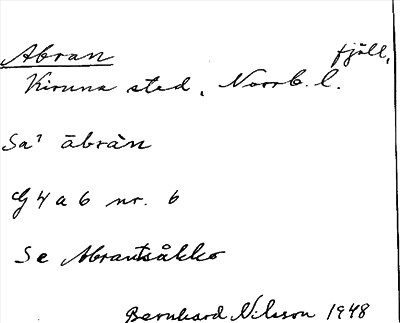 Abran fjäll,
Kiruna stad, Norrb. l.
Sa² ābràn
G 4 a 6 nr. 6
Se Abrantsåkko
Bernhard Nilsson 1948